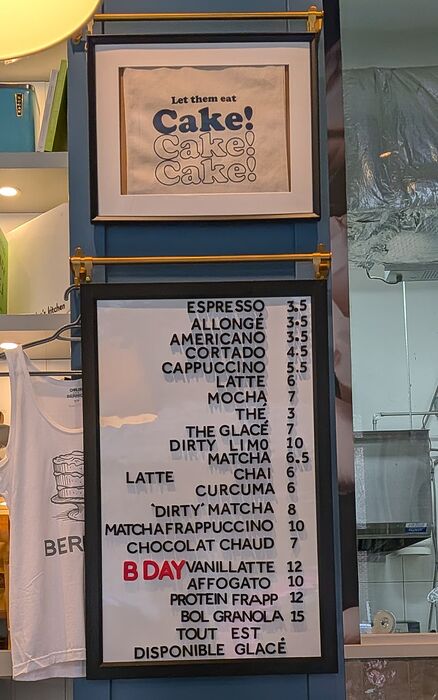 Let them eat
Cake!
Cake!
Cake!
's kitchen
ESPRESSO 3.5
ALLONGÉ 3.5
AMERICANO 3.5
CORTADO 4.5
CAPPUCCINO 5.5
LATTE 6
MOCHA 7
THÉ 3
THE GLACÉ 7
DIRTY LIMO 10
MATCHA 6.5
LATTE CHAI 6
CURCUMA 6
'DIRTY' MATCHA 8
MATCHA FRAPPUCCINO 10
CHOCOLAT CHAUD 7
B DAY VANILLATTE 12
AFFOGATO 10
PROTEIN FRAPP 12
BOL GRANOLA 15
TOUT EST
DISPONIBLE GLACÉ
BER